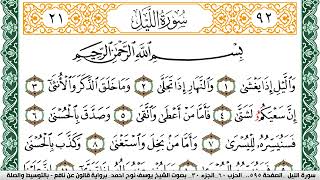 ٩٢ سُورَةُ اللَّيْلِ ٢١
بِسْمِ اللَّهِ الرَّحْمَٰنِ الرَّحِيمِ
وَالَّيْلِ إِذَا يَغْشَىٰ ١ وَالنَّهَارِ إِذَا تَجَلَّىٰ ٢ وَمَا خَلَقَ الذَّكَرَ وَالْأُنثَىٰ ٣
إِنَّ سَعْيَكُمْ لَشَتَّىٰ ٤ فَأَمَّا مَنْ أَعْطَىٰ وَاتَّقَىٰ ٥ وَصَدَّقَ بِالْحُسْنَىٰ ٦
فَسَنُيَسِّرُهُ لِلْيُسْرَىٰ ٧ وَأَمَّا مَن بَخِلَ وَاسْتَغْنَىٰ ٨ وَكَذَّبَ بِالْحُسْنَىٰ ٩
سورة الليل - الصفحة ٥٩٥ - الحزب ٦٠ - الجزء ٣٠ - بصوت الشيخ يوسف نوح احمد - برواية قالون عن نافع - بالتوسيط والصلة